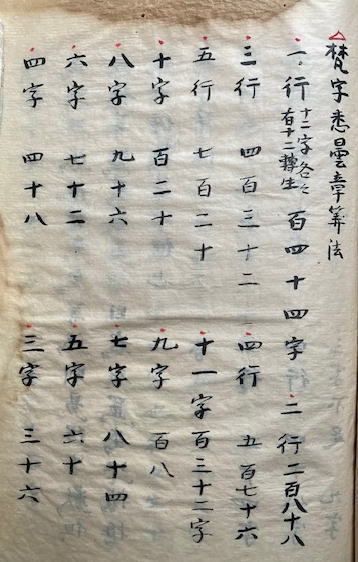 梵字悉曇章筭法
一行 十二字各々有十二轉生 百四十四字 二行 二百八十八
三行 四百三十二 四行 五百七十六
五行 七百二十 十一字 百三十二字
十字 百二十 九字 百八
八字 九十六 七字 八十四
六字 七十二 五字 六十
四字 四十八 三字 三十六